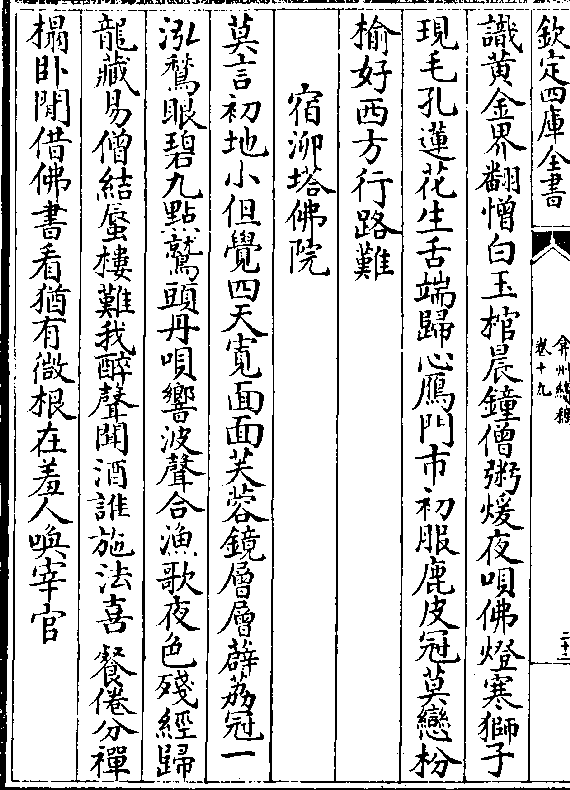 欽定四庫全書
弇州續稿
卷十九
二十二
識黃金界翻憎白玉棺晨鐘僧粥煖夜唄佛燈寒獅子
現毛孔蓮花生舌端歸心鴈門市初服鹿皮冠莫戀枌
榆好西方行路難
宿泖塔佛院
莫言初地小但覺四天寛面面芙蓉鏡層層薜荔冠一
泓鶖眼碧九點鷲頭丹唄響波聲合漁歌夜色殘經歸
龍藏易僧結蜃樓難我醉聲聞酒誰施法喜餐倦分禪
榻卧閒借佛書看猶有微根在羞人喚宰官